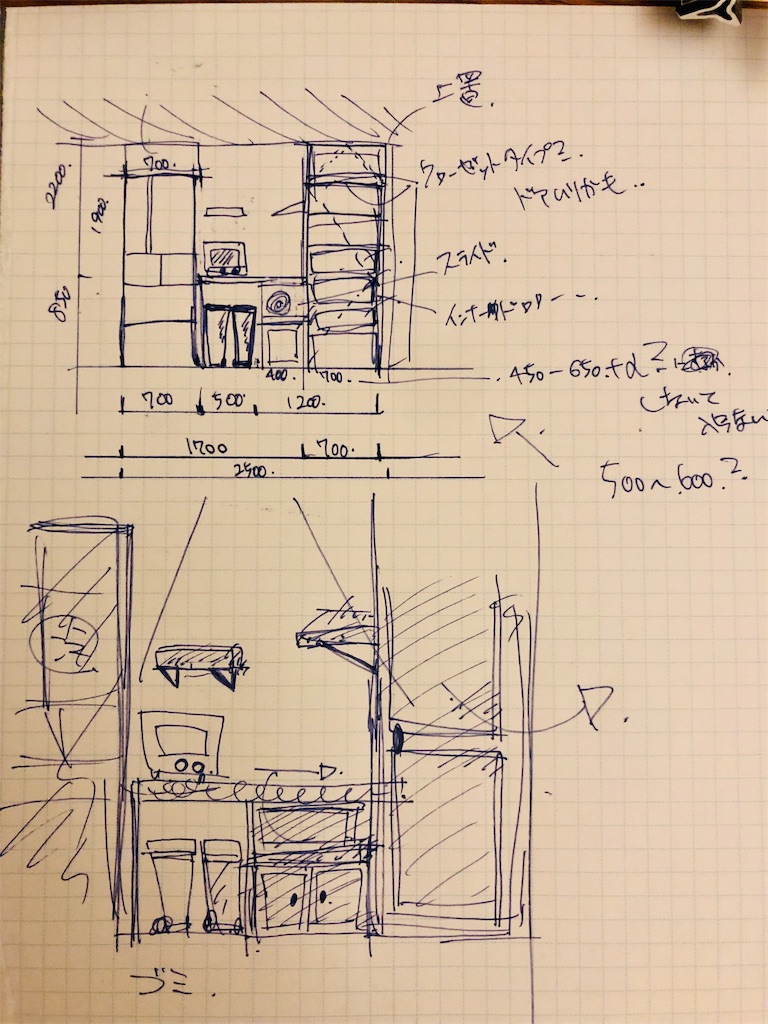 上置.
700.
2200.
1900.
クローゼットタイプ?
ドアいりかも..
スライド.
850
インナードロワー - -.
400.
700.
450-650.+α?
700
500
1200.
1700
700.
500~600.?
2500.
ゴミ.